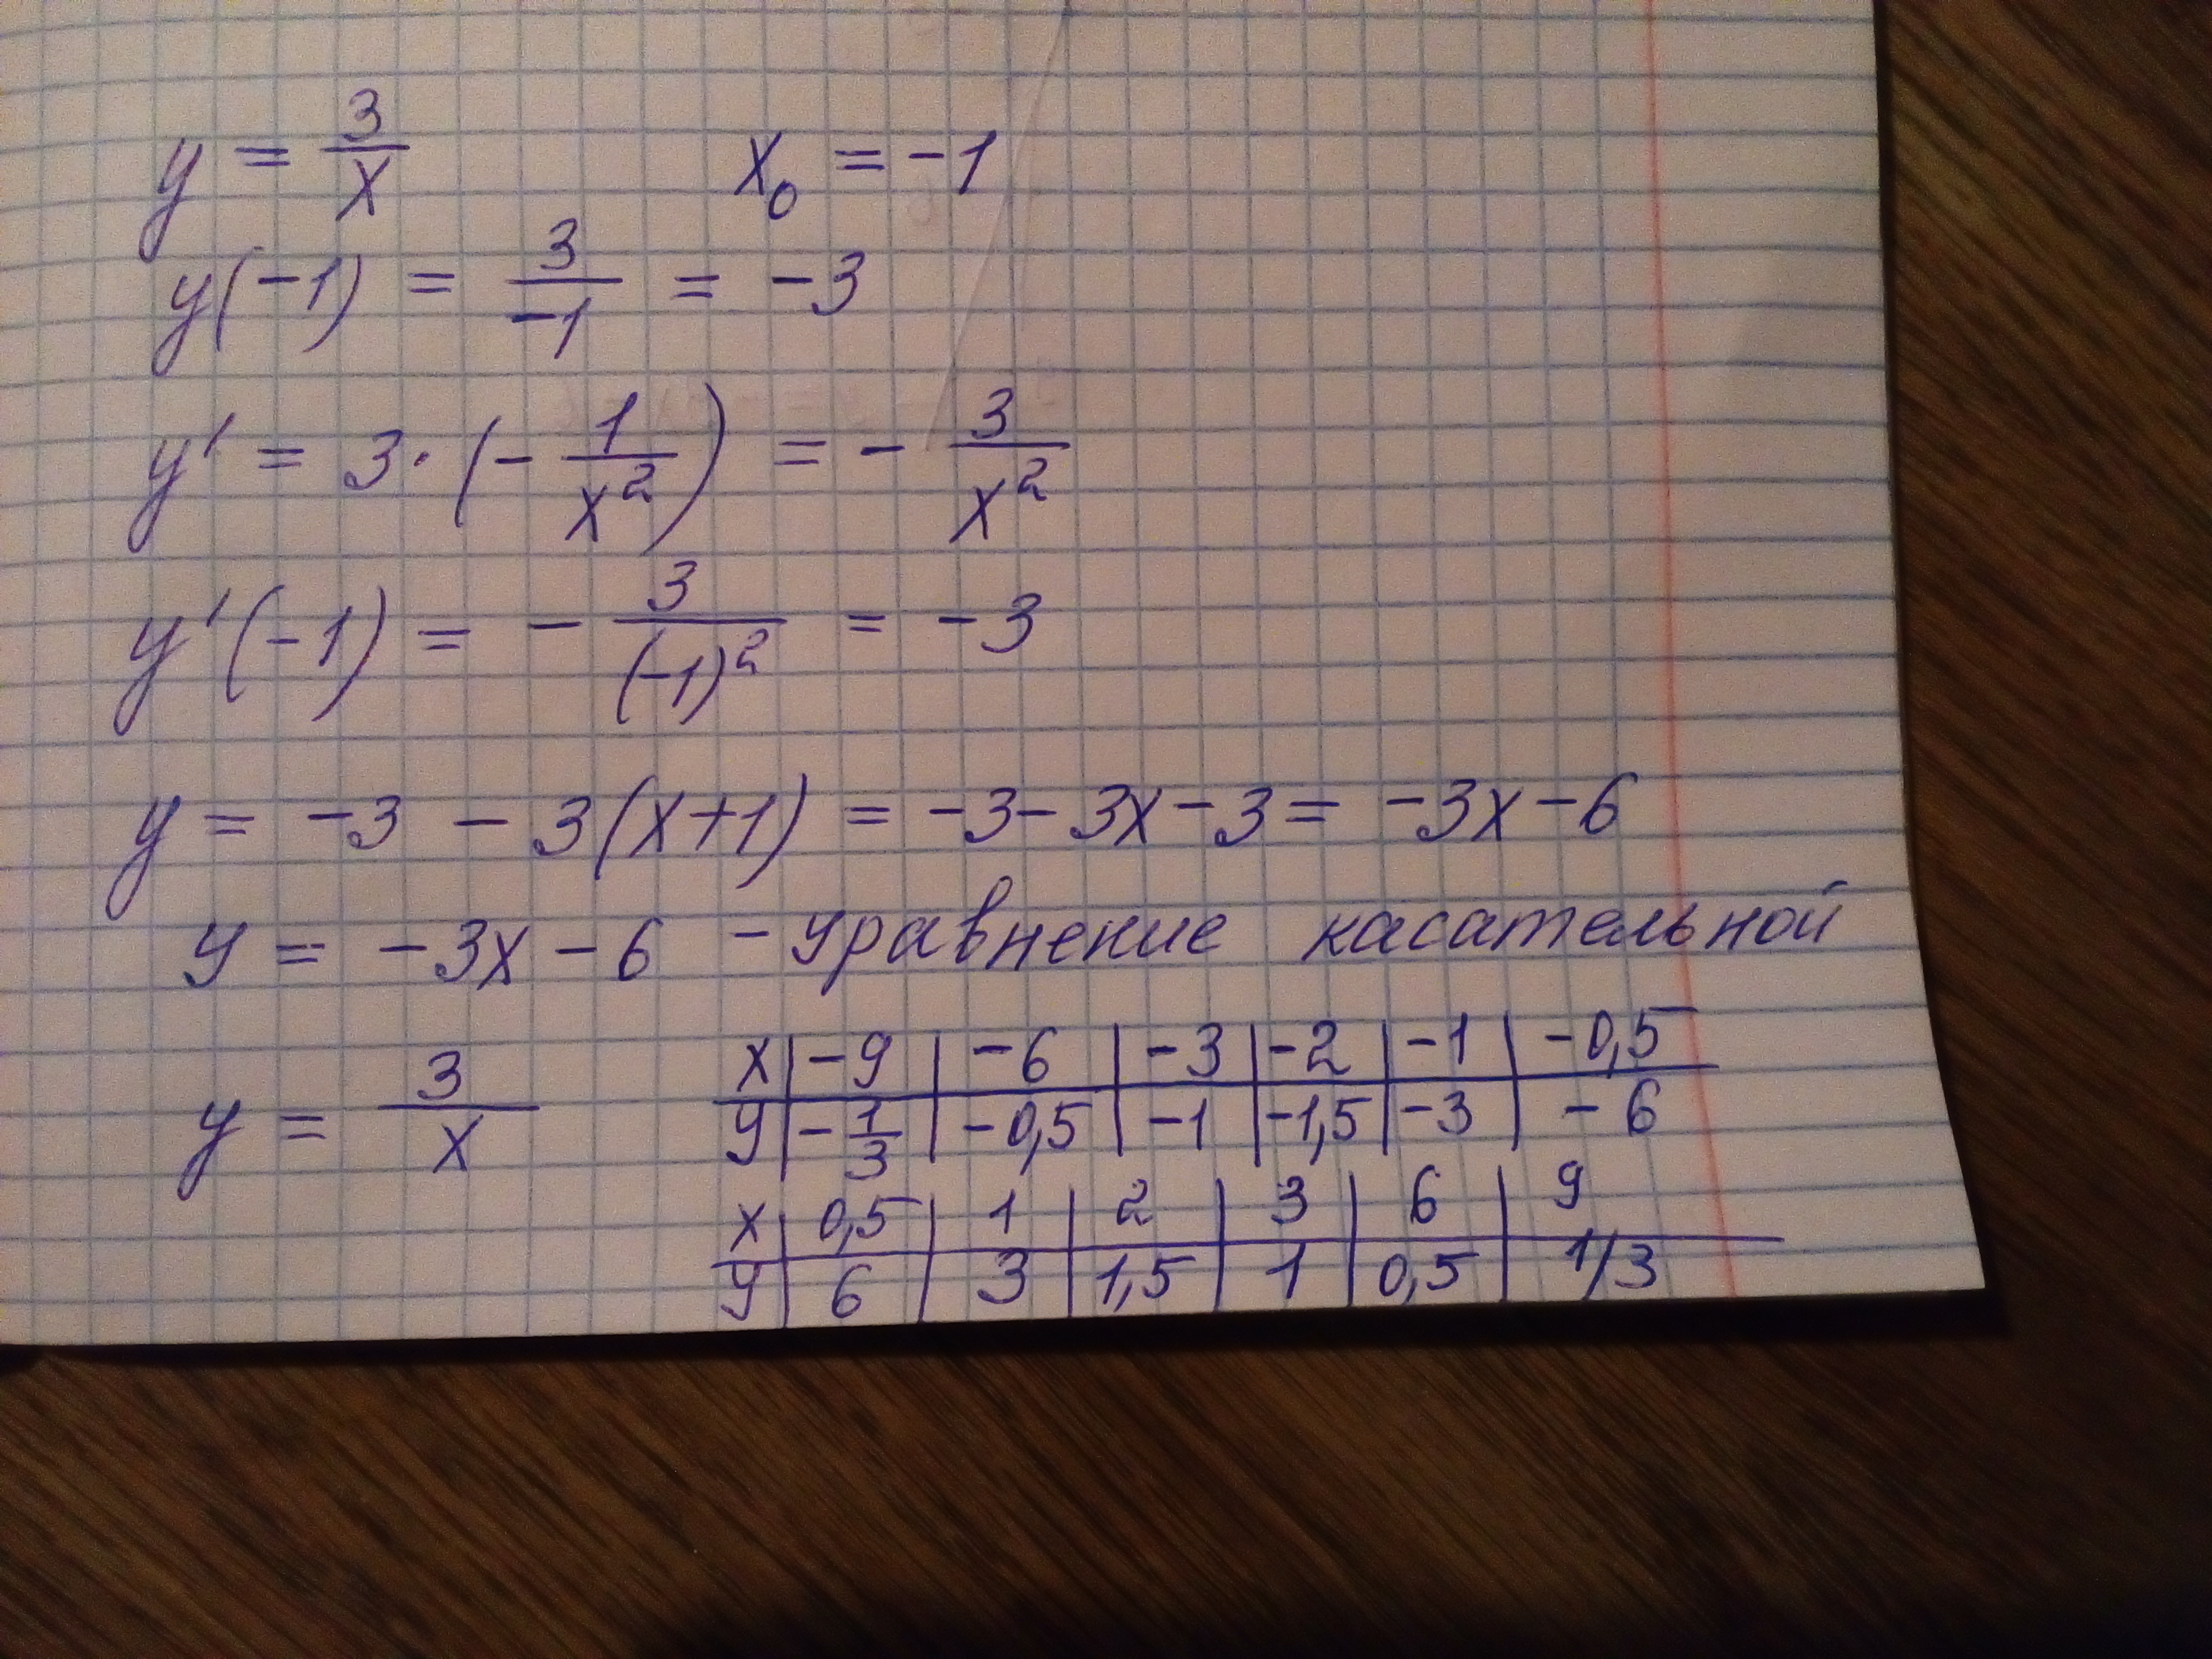 y = 3/x x₀ = -1
y(-1) = 3/-1 = -3
y' = 3·(-1/x²) = -3/x²
y'(-1) = -3/(-1)² = -3
y = -3 - 3(x+1) = -3-3x-3 = -3x-6
y = -3x-6 - уравнение касательной
y = 3/x
x | -9 | -6 | -3 | -2 | -1 | -0,5
y | -1/3 | -0,5 | -1 | -1,5 | -3 | -6
x | 0,5 | 1 | 2 | 3 | 6 | 9
y | 6 | 3 | 1,5 | 1 | 0,5 | 1/3